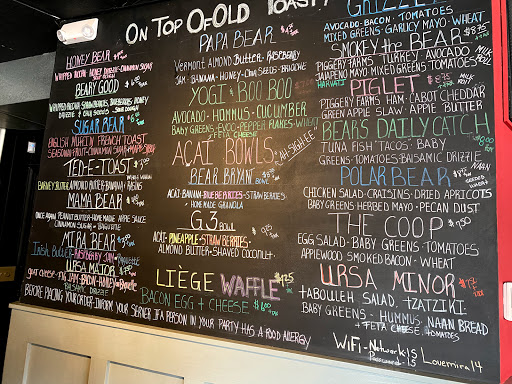 ON TOP OF OLD TOAST
HONEY BEAR
WHIPPED RICOTTA HONEY RAISINS CINNAMON
BEARY GOOD
WHIPPED RICOTTA STRAWBERRIES, BLUEBERRIES, HONEY
DRIZZLE
SUGAR BEAR
ENGLISH MUFFIN FRENCH TOAST
SEASONAL FRUIT-CINNAMON SUGAR
TED-E-TOAST
ALMOND BUTTER-BANANA-RAISINS
MAMA BEAR
PEANUT BUTTER-HOMEMADE APPLE SAUCE
CINNAMON SUGAR-BAGUETTE
MIRA BEAR
IRISH BUTTER-RASPBERRY JAM-BAGUETTE
URSA MAJOR
GOAT CHEESE-FIG JAM-BACON-HONEY-BAGUETTE
BALSAMIC DRIZZLE
BEFORE PLACING YOUR ORDER-INFORM YOUR SERVER IF A PERSON IN YOUR PARTY HAS A FOOD ALLERGY
PAPA BEAR
VERMONT ALMOND BUTTER-RASPBERRY
JAM-BANANA-HONEY-CHIA SEEDS-BRIOCHE
YOGI & BOO BOO
AVOCADO-HUMMUS-CUCUMBER
BABY GREENS-EVOO-PEPPER FLAKES-WHEAT
+FETA CHEESE
AÇAÍ BOWLS
(AH-SIGHEE)
BEAR BRYANT BOWL
AÇAÍ-BANANA-BLUEBERRIES-STRAWBERRIES-
HOMEMADE GRANOLA
G3 BOWL
AÇAÍ-PINEAPPLE-STRAWBERRIES-
ALMOND BUTTER-SHAVED COCONUT
LIÈGE WAFFLE
BACON EGG + CHEESE
GRIZZL
AVOCADO-BACON-TOMATOES
MIXED GREENS-GARLICY MAYO-WHEAT
SMOKEY THE BEAR
PIGGERY FARMS TURKEY AVOCADO
JALAPENO MAYO-MIXED GREENS-TOMATOES
HAVARTI
MILK ROLL
PIGLET
MILK ROLL
PIGGERY FARMS HAM-CABOT CHEDDAR
GREEN APPLE SLAW-APPLE BUTTER
BEAR'S DAILY CATCH
TUNA FISH "TACOS" BABY
GREENS-TOMATOES-BALSAMIC DRIZZLE
NAAN
POLAR BEAR
CHICKEN SALAD-CRAISINS-DRIED APRICOTS
BABY GREENS HERBED MAYO-PECAN DUST
THE COOP
EGG SALAD-BABY GREENS-TOMATOES
APPLEWOOD SMOKED BACON-WHEAT
URSA MINOR
TABOULEH SALAD-TZATZIKI
BABY GREENS-HUMMUS NAAN BREAD
+FETA CHEESE TOMATOES
WIFI-Network is
Password is Lovemira14